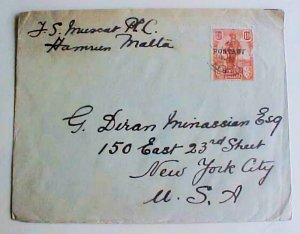 J. S. Muscat P.L.C.
Hamrun Malta
POSTAGE
G. Diran Minassian Esq
150 East 23rd Street
New York City
U. S. A